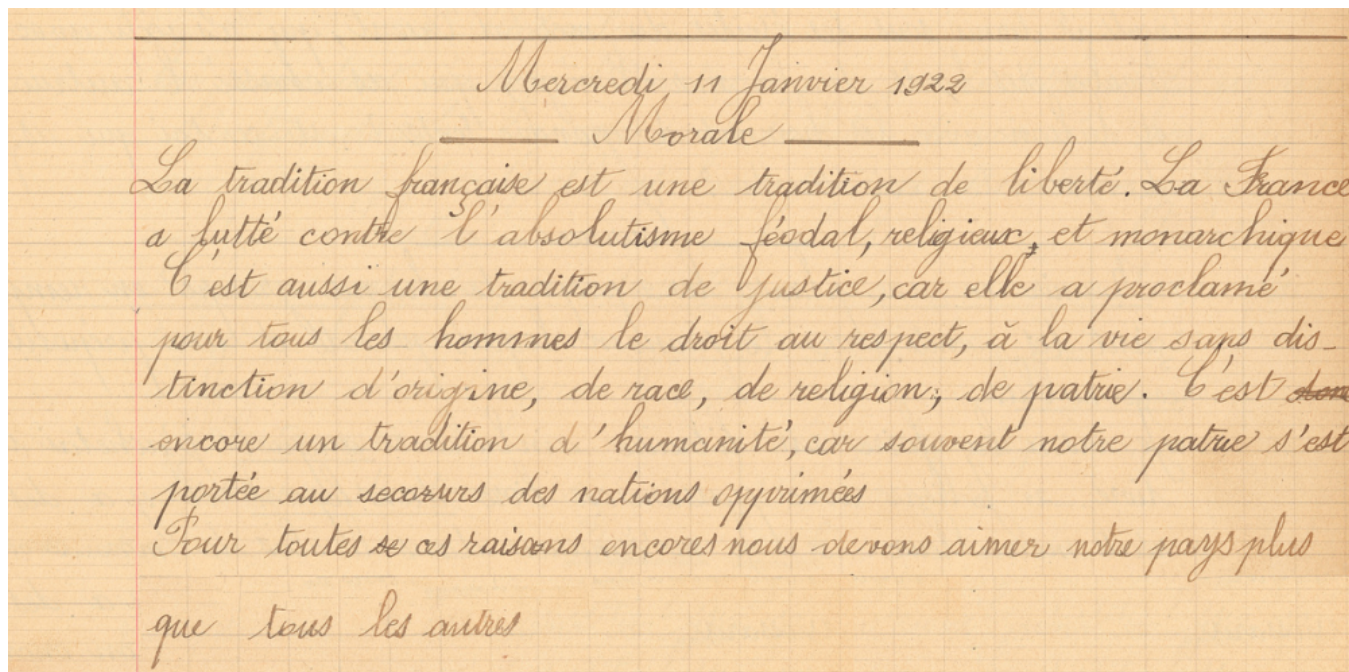 Mercredi 11 Janvier 1922
Morale
La tradition française est une tradition de liberté. La France
a lutté contre l'absolutisme féodal, religieux, et monarchique
C'est aussi une tradition de justice, car elle a proclamé
pour tous les hommes le droit au respect, à la vie sans dis-
tinction d'origine, de race, de religion, de patrie. C'est
encore un tradition d'humanité, car souvent notre patrie s'est
portée au secours des nations opprimées
Pour toutes ces raisons encores nous devons aimer notre pays plus
que tous les autres